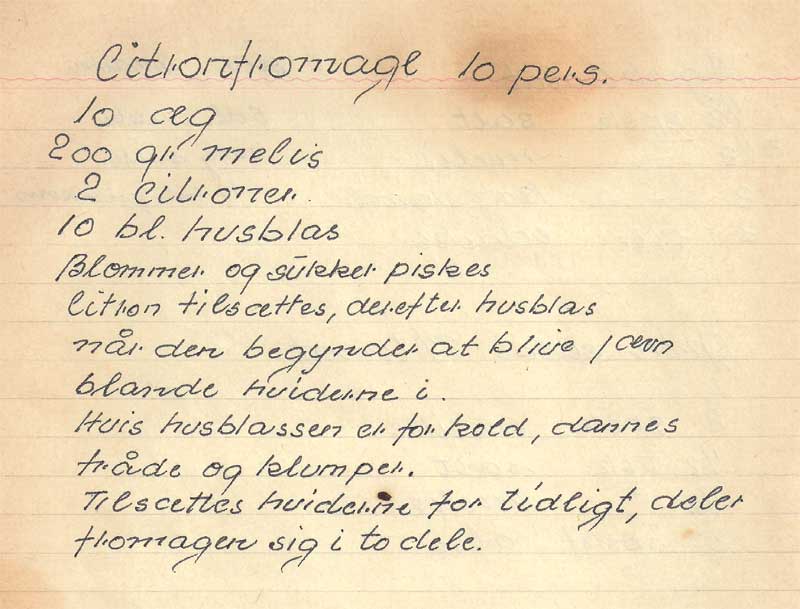 Citronfromage 10 pers.
10 æg
200 gr melis
2 citroner.
10 bl. husblas
Blommer og sukker piskes
Citron tilsættes, derefter husblas
når den begynder at blive jævn
blande hviderne i.
Hvis husblassen er for kold, dannes
tråde og klumper.
Tilsættes hviderne for tidligt, deler
fromagen sig i to dele.